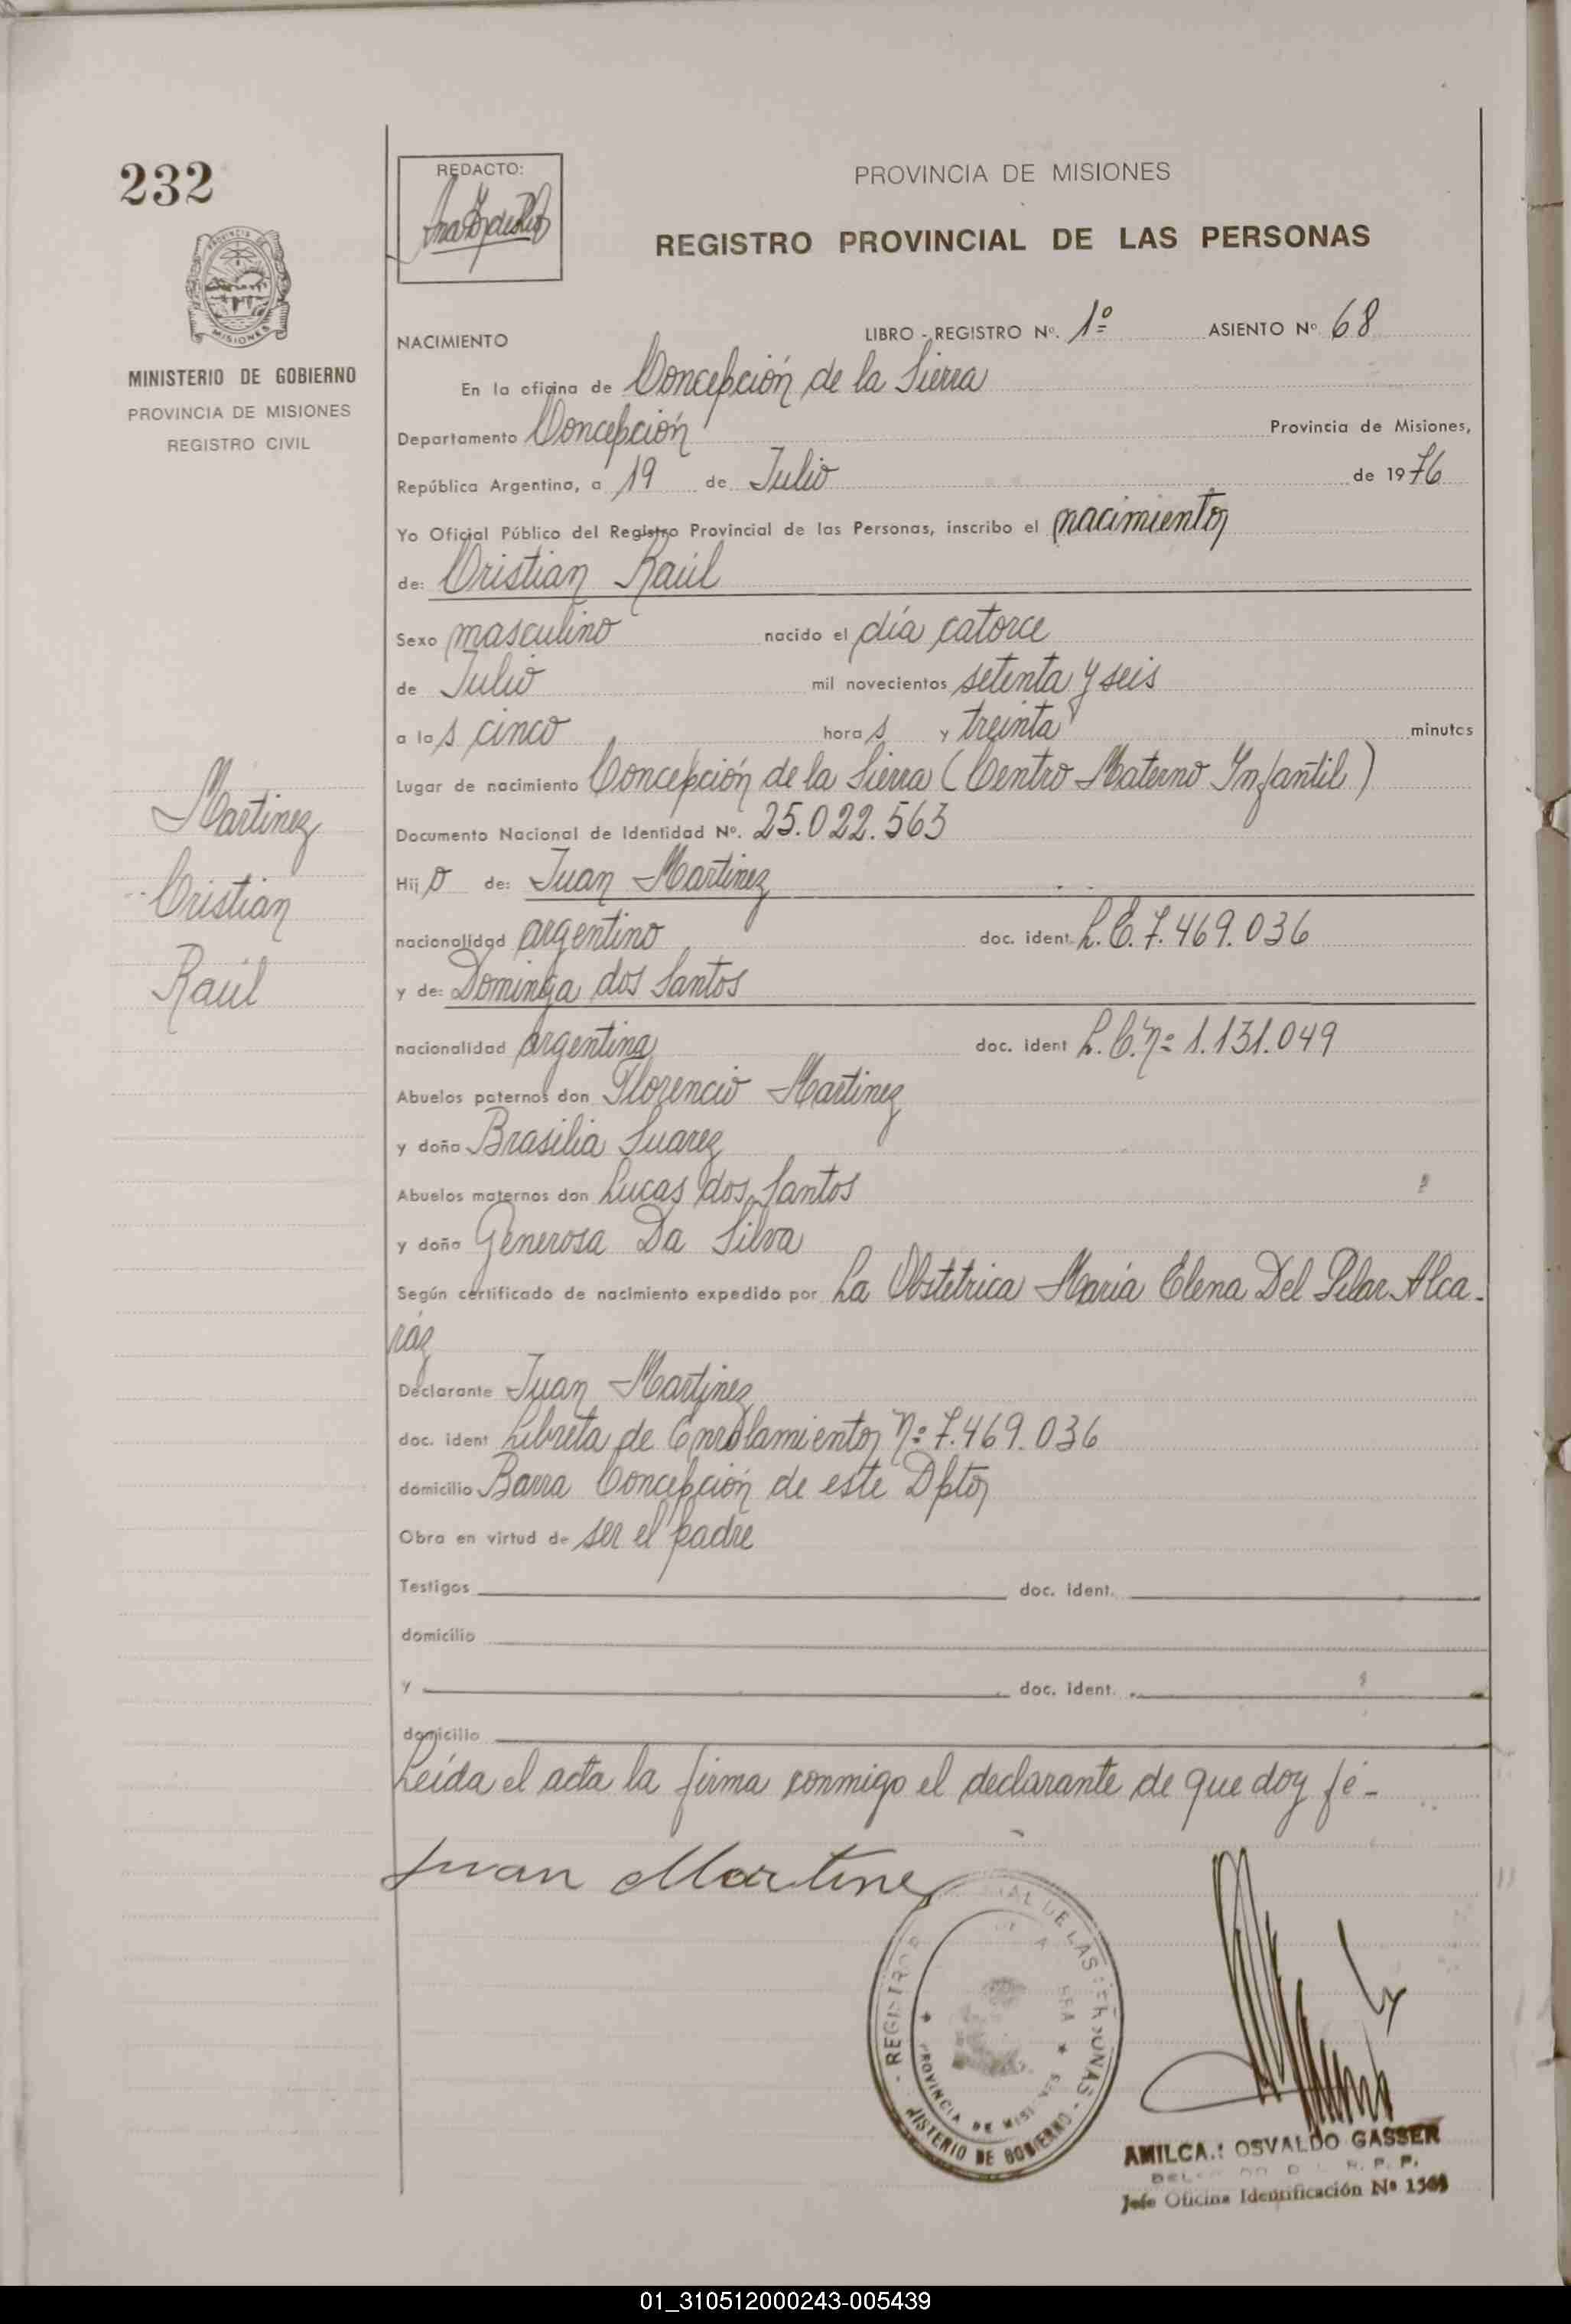 232
REDACTO:
PROVINCIA DE MISIONES
REGISTRO PROVINCIAL DE LAS PERSONAS
PROVINCIA DE
MISIONES
MINISTERIO DE GOBIERNO
PROVINCIA DE MISIONES
REGISTRO CIVIL
NACIMIENTO LIBRO - REGISTRO Nº. 1º ASIENTO Nº 68
En la oficina de Concepción de la Sierra
Departamento Concepción Provincia de Misiones,
República Argentina, a 19 de Julio de 1976
Yo Oficial Público del Registro Provincial de las Personas, inscribo el nacimiento
de: Cristian Raúl
Sexo masculino nacido el día catorce
de Julio mil novecientos setenta y seis
a las cinco horas y treinta minutos
Lugar de nacimiento Concepción de la Sierra (Centro Materno Infantil)
Documento Nacional de Identidad Nº. 25.022.563
Hijo de: Juan Martinez
nacionalidad argentino doc. ident. L.E. 7.469.036
y de: Dominga dos Santos
nacionalidad argentina doc. ident L.C. Nº 1.131.049
Abuelos paternos don Florencio Martinez
y doña Brasilia Suarez
Abuelos maternos don Lucas dos Santos
y doña Generosa Da Silva
Según certificado de nacimiento expedido por La Obstetrica María Elena Del Pilar Alca-
ráz
Declarante Juan Martinez
doc. ident Libreta de Enrolamiento Nº 7.469.036
domicilio Barra Concepción de este Dpto
Obra en virtud de ser el padre
Testigos doc. ident.
domicilio
y doc. ident.
domicilio
Leída el acta la firma conmigo el declarante de que doy fé-
Martinez
Cristian
Raúl
Juan Martinez
REGISTRO DE LAS PERSONAS
PROVINCIA DE MISIONES
MINISTERIO DE GOBIERNO
AMILCA.: OSVALDO GASSER
R. P. P.
Jefe Oficina Identificación Nº 1569
01_310512000243-005439